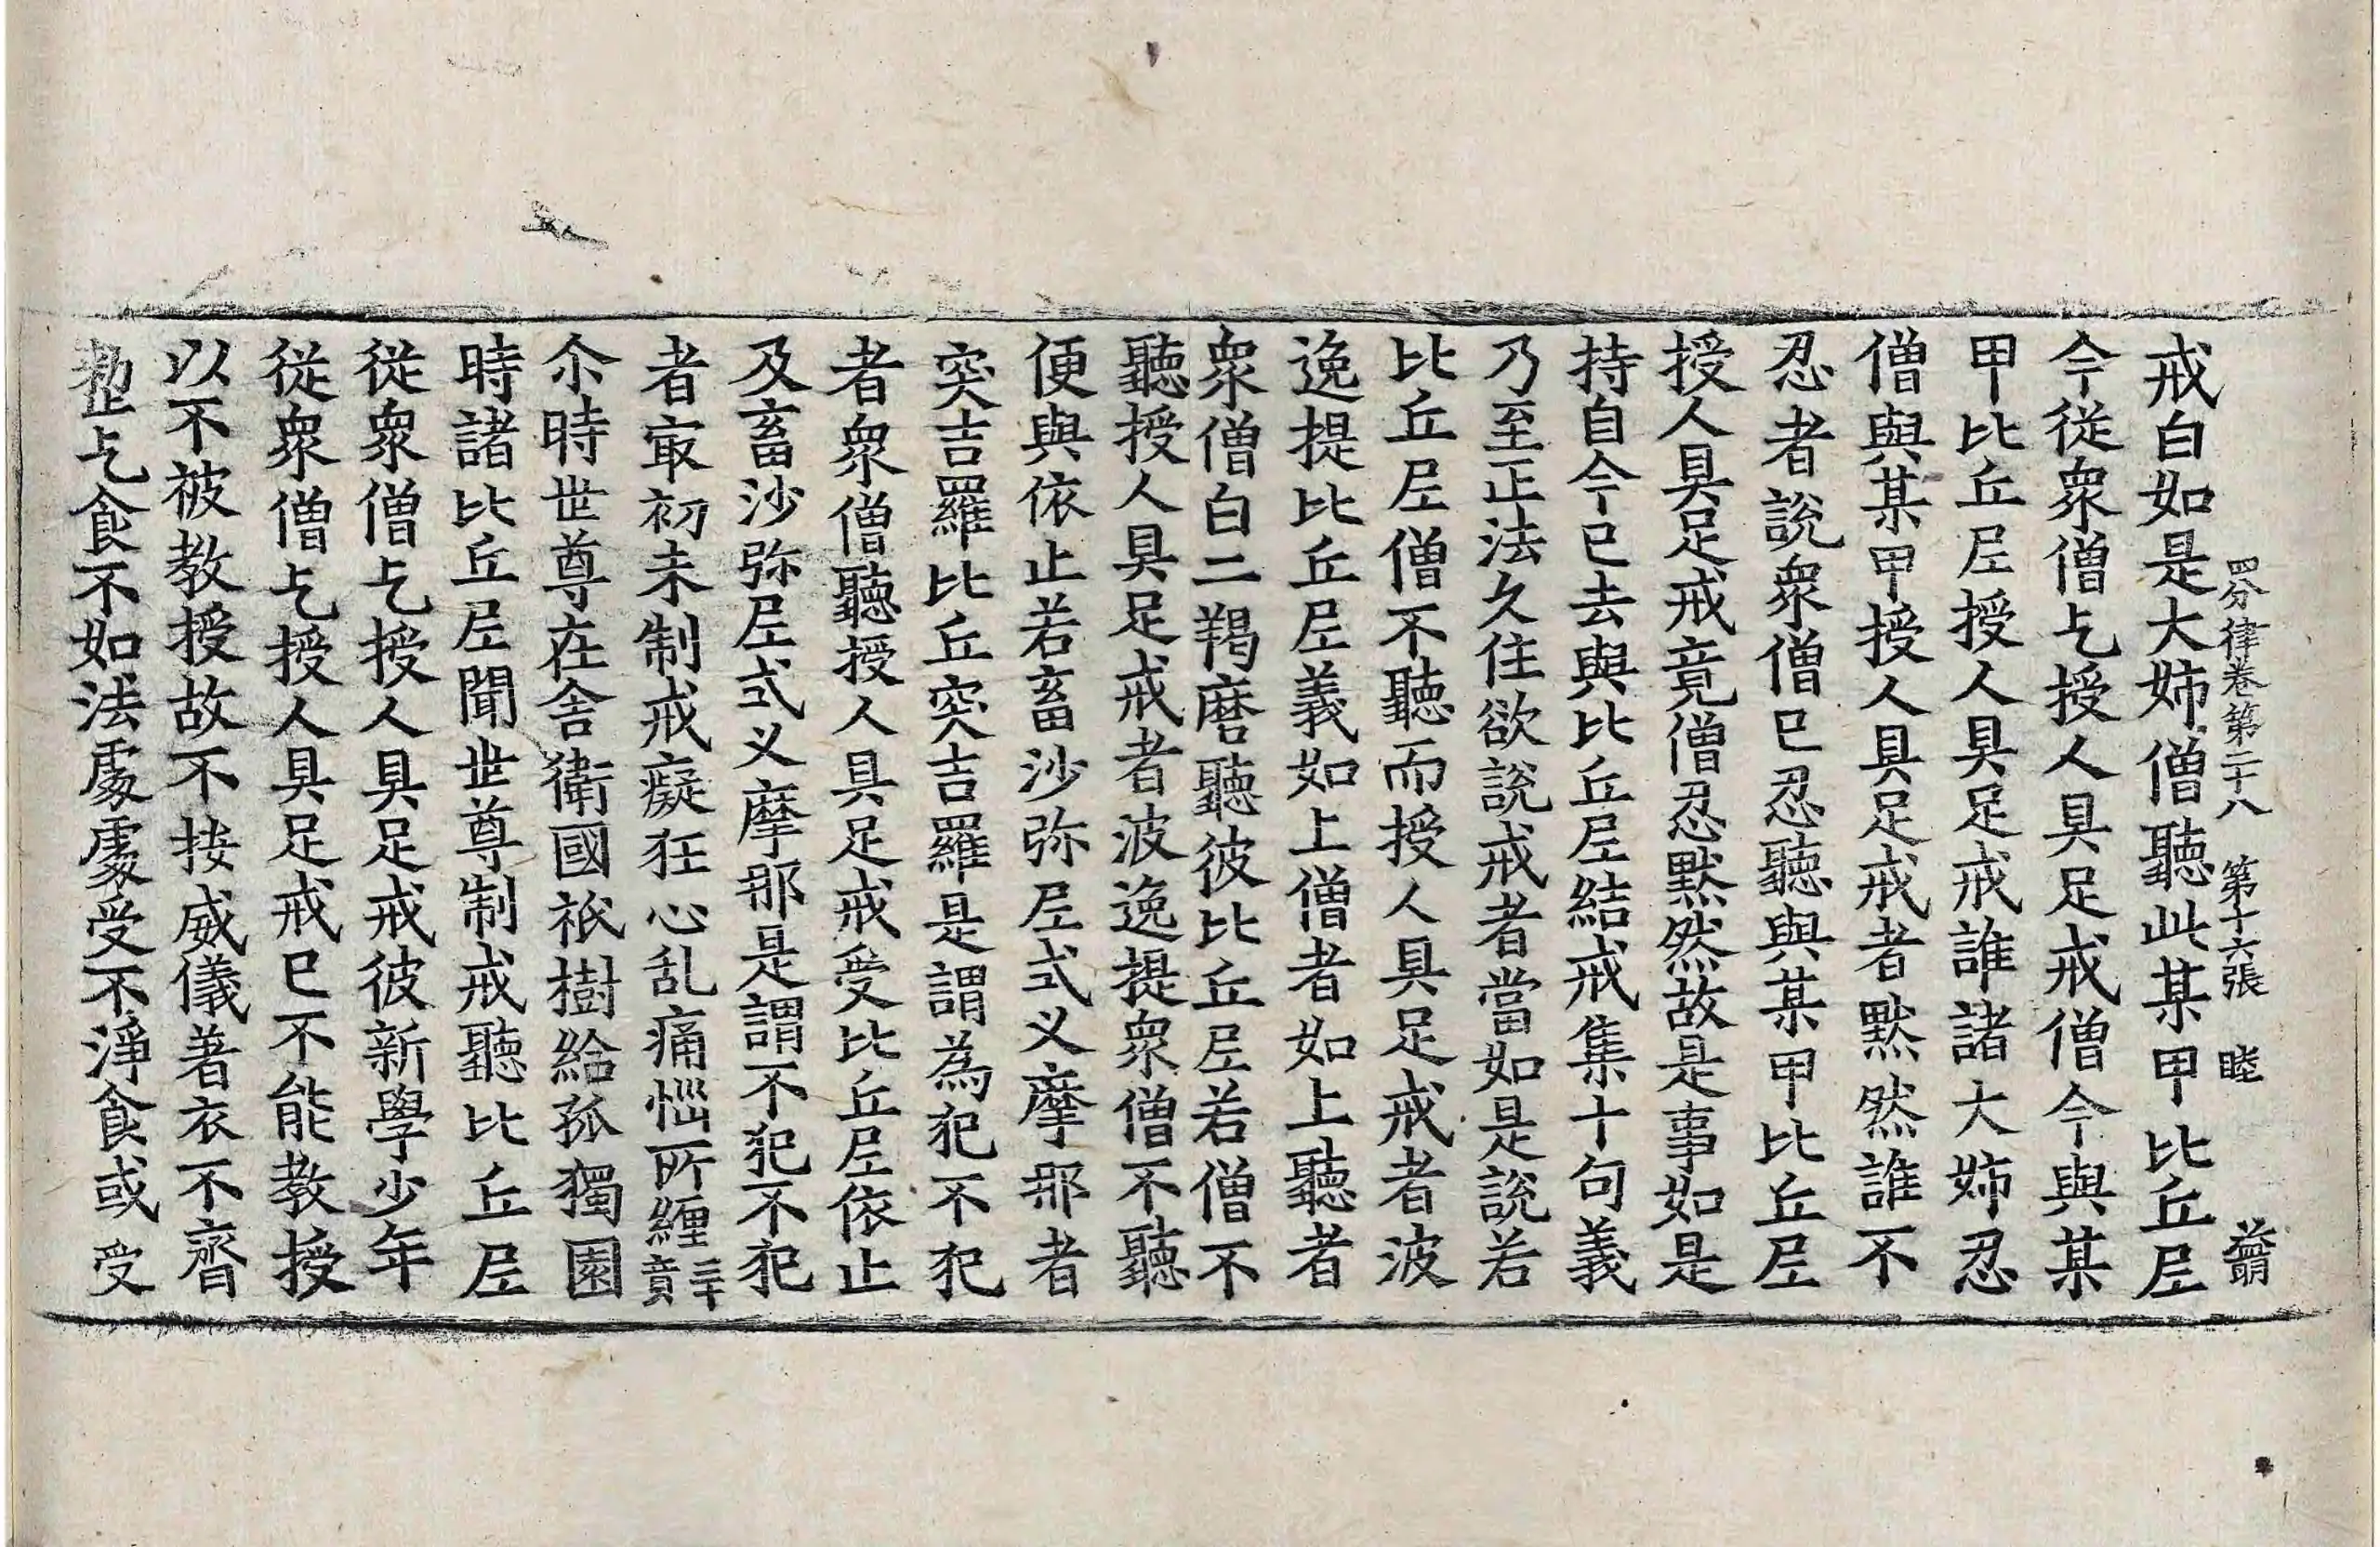 四分律卷第二十八 第十六張 睦
戒白如是大姉僧聽此某甲比丘尼
今從衆僧乞授人具足戒僧今與某
甲比丘尼授人具足戒誰諸大姉忍
僧與某甲授人具足戒者默然誰不
忍者說衆僧已忍聽與某甲比丘尼
授人具足戒竟僧忍默然故是事如是
持自今已去與比丘尼結戒集十句義
乃至正法久住欲說戒者當如是說若
比丘尼僧不聽而授人具足戒者波
逸提比丘尼義如上僧者如上聽者
衆僧白二羯磨聽彼比丘尼若僧不
聽授人具足戒者波逸提衆僧不聽
便與依止若畜沙弥尼式义摩那者
突吉羅比丘突吉羅是謂為犯不犯
者衆僧聽授人具足戒受比丘尼依止
及畜沙弥尼式义摩那是謂不犯不犯
者㝡初未制戒癡狂心乱痛惱所纏一百三十
尒時世尊在舍衛國祇樹給孤獨園
時諸比丘尼聞世尊制戒聽比丘尼
從衆僧乞授人具足戒彼新學少年
從衆僧乞授人具足戒已不能教授
以不被教授故不按威儀著衣不齊
整乞食不如法處處受不淨食或受